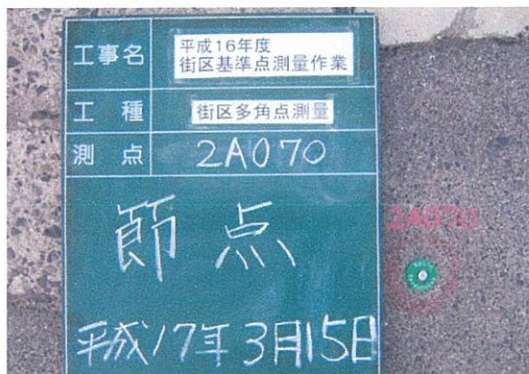 工事名
平成16年度
街区基準点測量作業
工種
街区多角点測量
測点
2A070
節点
平成17年3月15日
2A070